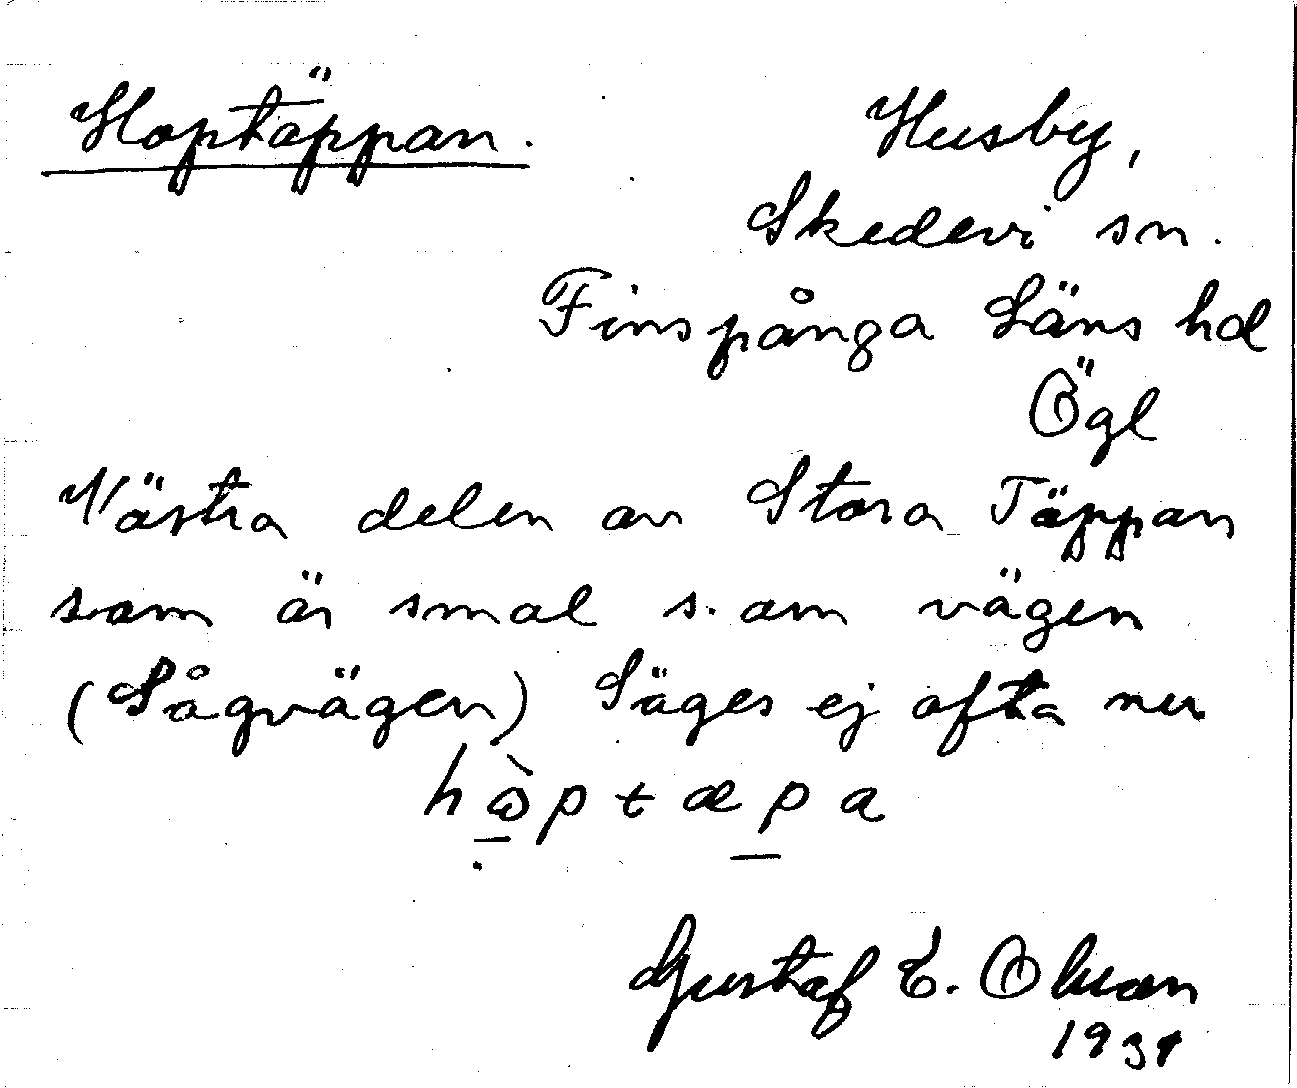 Hoptäppan.
Husby,
Skedevi sn.
Finspånga Läns hd
Ögl
Västra delen av Stora Täppan
som är smal s. om vägen
(Sågvägen) Säges ej ofta nu.
Gustaf E.